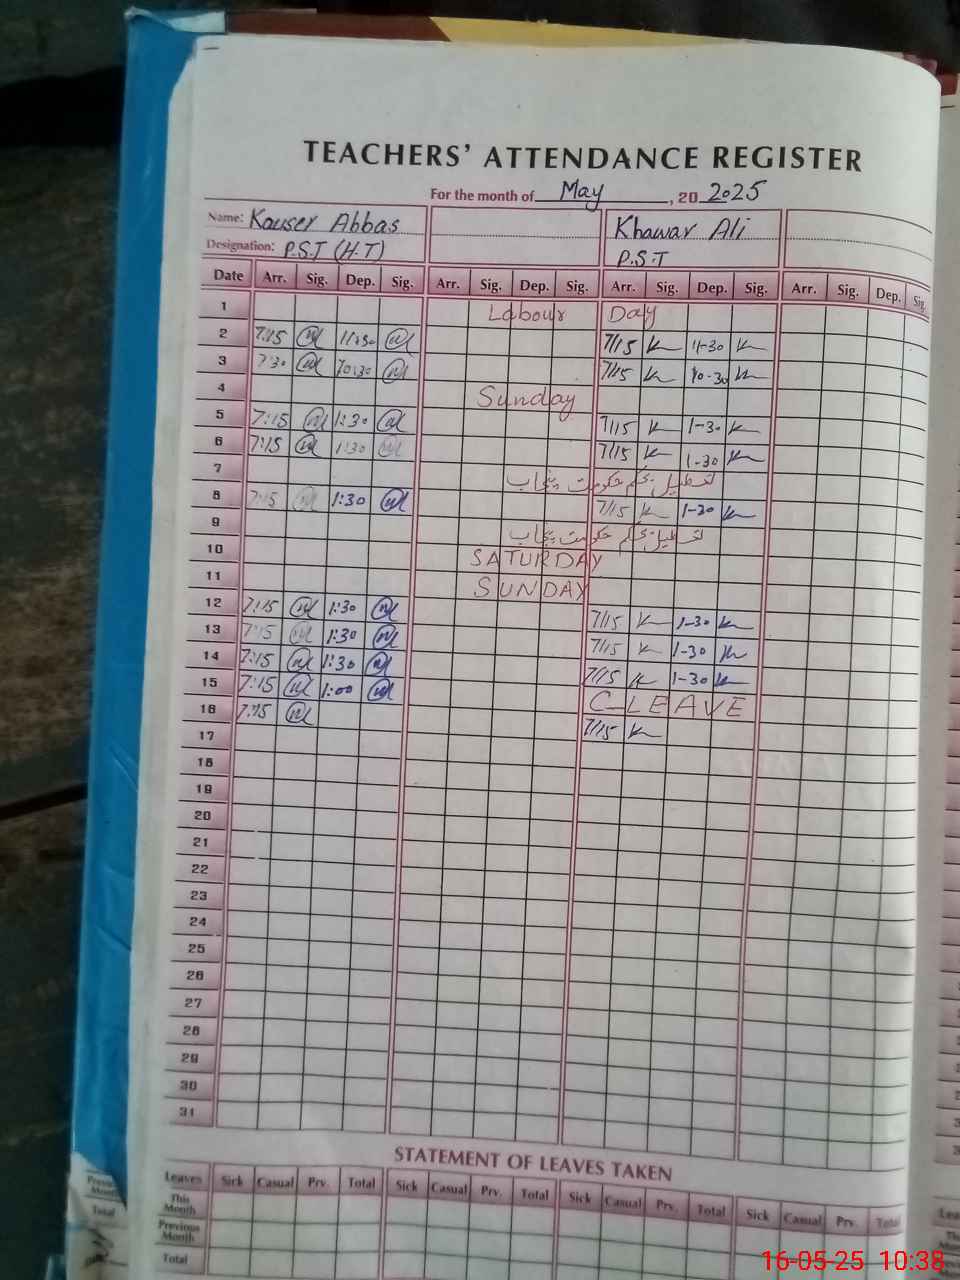 TEACHERS' ATTENDANCE REGISTER
For the month of May, 20 2025
Name: Kouser Abbas Khawar Ali
Designation: P.S.T (H.T) P.S.T
Date Arr. Sig. Dep. Sig. Arr. Sig. Dep. Sig. Arr. Sig. Dep. Sig. Arr. Sig. Dep. Sig.
1 Labour Day
2 7:15 11:30 7/15 11-30
3 7:30 10:30 7/15 10-30
4 Sunday
5 7:15 1:30 7/15 1-30
6 7:15 1:30 7/15 1-30
7 تعطیل بحکم حکومت پنجاب
8 7:15 1:30 7/15 1-30
9 تعطیل بحکم حکومت پنجاب
10 SATURDAY
11 SUNDAY
12 7:15 1:30 7/15 1-30
13 7:15 1:30 7/15 1-30
14 7:15 1:30 7/15 1-30
15 7:15 1:00 C-LEAVE
16 7:15 7/15
17
18
19
20
21
22
23
24
25
26
27
28
29
30
31
STATEMENT OF LEAVES TAKEN
Leaves Sick Casual Prv. Total Sick Casual Prv. Total Sick Casual Prv. Total Sick Casual Prv. Total
This Month
Previous Month
Total
16-05-25 10:38